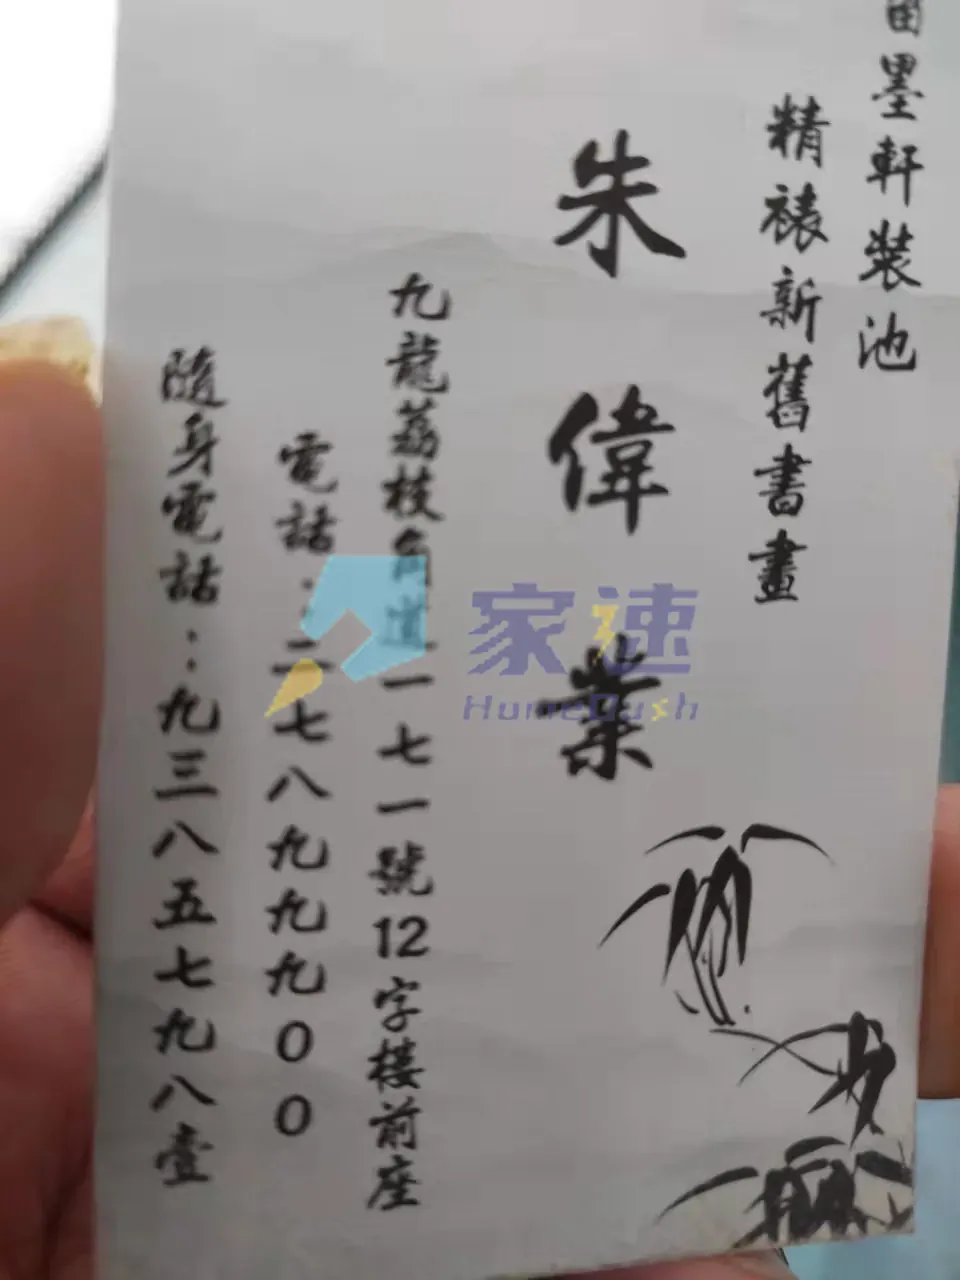 墨軒裝池
精裱新舊書畫
朱偉業
九龍荔枝角道一七一號12字樓前座
電話：二七八九九九00
隨身電話：九三八五七九八壹
家速
HomeDash